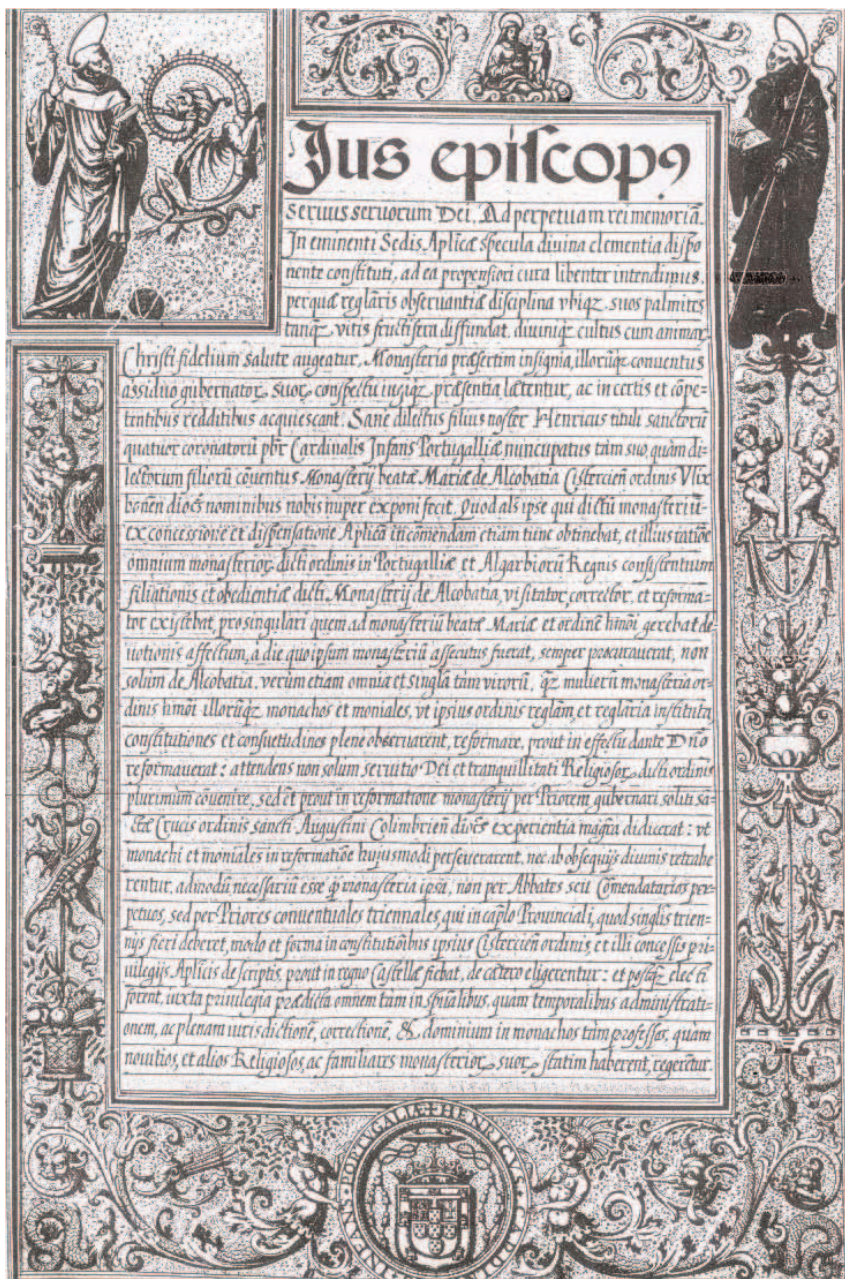 Jus episcopꝰ
seruus seruorum Dei. Ad perpetuam rei memoriā.
In eminenti Sedis Aplicæ specula diuina clementia dispo
nente constituti, ad ea propensiori cura libenter intendimus,
per quæ reglāris obseruantiæ disciplina vbiqȝ suos palmites
tanqȝ vitis fructifera diffundat, diuiniqȝ cultus cum animaꝝ
Christi fidelium salute augeatur, Monasteria præsertim insignia, illorūqȝ conuentus
assiduo gubernatoꝝ suoꝝ conspectu iugiqȝ præsentia lætentur, ac in certis et cōpe-
tentibus redditibus acquiescant. Sane dilectus filius noster Henricus tituli sanctorū
quatuor coronatorū pbr Cardinalis Infans Portugalliæ nuncupatus tàm suo, quàm di-
lectorum filiorū cōuentus Monasterij beatæ Mariæ de Alcobatia Cistercieñ ordinis Vlix
boneñ dioc̄s nominibus nobis nuper exponi fecit. Quod als ipse qui dictū monasteriū
ex concessione et dispensatione Aplicā in comendam etiam tunc obtinebat, et illius ratiōe
omnium monasterioꝝ dicti ordinis in Portugalliæ et Algarbiorū Regnis consistentium
filiationis et obedientiæ dicti Monasterij de Alcobatia, visitator, corrector, et reforma-
tor existebat, pro singulari quem ad monasteriū beatæ Mariæ et ordinē hmōi gerebat de-
uotionis affectum, à die quo ipsum monasteriū assecutus fuerat, semper procurauerat, non
solùm de Alcobatia, verùm etiam omnia et singla tàm virorū, qȝ mulierū monasteria or-
dinis hmōi illorūqȝ monachos et moniales, vt ipsius ordinis reglām, et reglāria instituta
constitutiones et consuetudines plenè obseruarent, reformare, prout in effectu dante Dn̄o
reformauerat: attendens non solùm seruitio Dei et tranquillitati Religiosoꝝ dicti ordinis
plurimùm cōuenire, sed et prout in reformatione monasterij per Priorem gubernari soliti sā-
ctæ Crucis ordinis sancti Augustini Colimbrieñ dioc̄s experientia magr̄a didicerat: vt
monachi et moniales in reformatiōe huiusmodi perseuerarent, nec ab obsequijs diuinis retrahe
rentur, admodū necessariū esse qȝ monasteria ipsa, non per Abbates seu Comendatarios per-
petuos, sed per Priores conuentuales triennales, qui in caplō Prouinciali, quod singlis trien-
nijs fieri deberet, modo et forma in constitutiōibus ipsius Cistercieñ ordinis, et illi concessis pri-
uilegijs Aplicis descriptis, prout in regno Castellæ fiebat, de cætero eligerentur: et postqȝ electi
forent, iuxta priuilegia prædicta omnem tàm in sp̄ualibus, quàm temporalibus administrati-
onem, ac plenam iurisdictionē, correctionē, &, dominium in monachos tàm professos, quàm
nouitios, et alios Religiosos, ac familiares monasterioꝝ suoꝝ statim haberent, regerētur.
INFANS · PORTVGALIA + HENRICVS · CARDIN